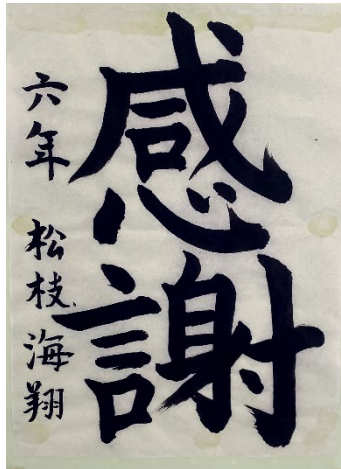 感謝
六年 松枝海翔